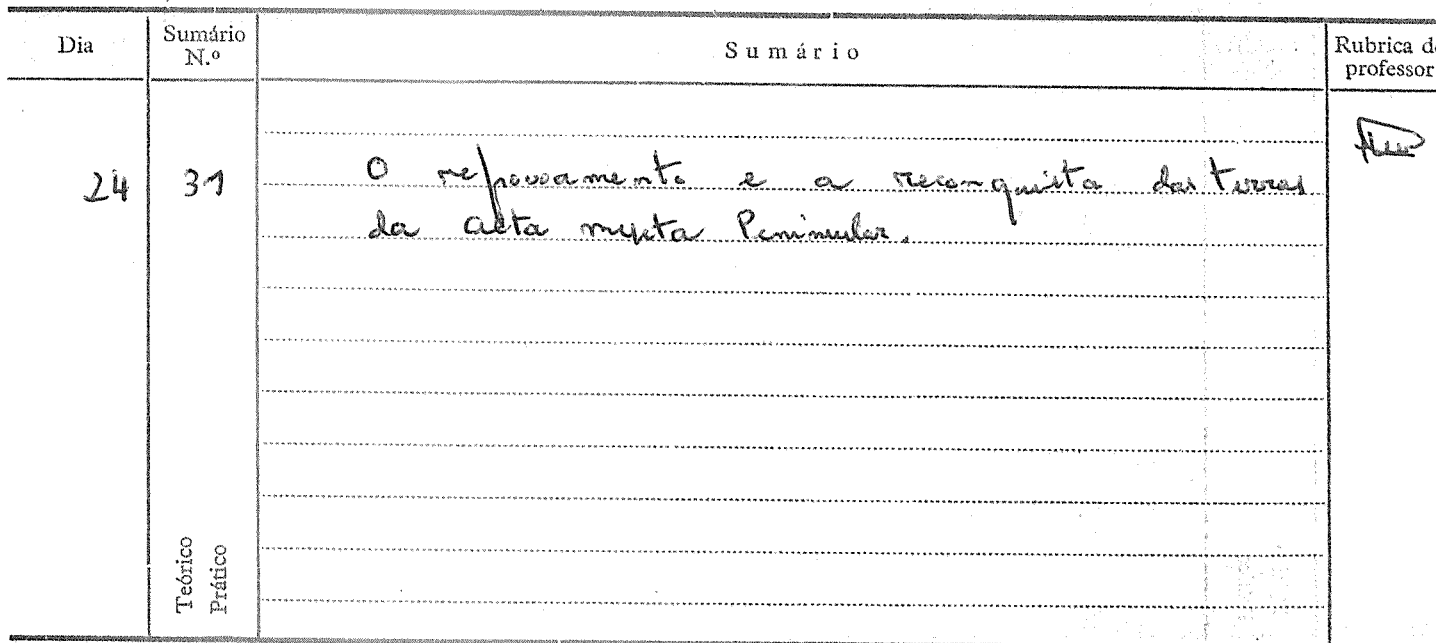 Dia
Sumário N.º
Sumário
Rubrica d
professor
24
31
O repovoamento e a reconquista das terras
da alta meseta Peninsular.
Teórico
Prático